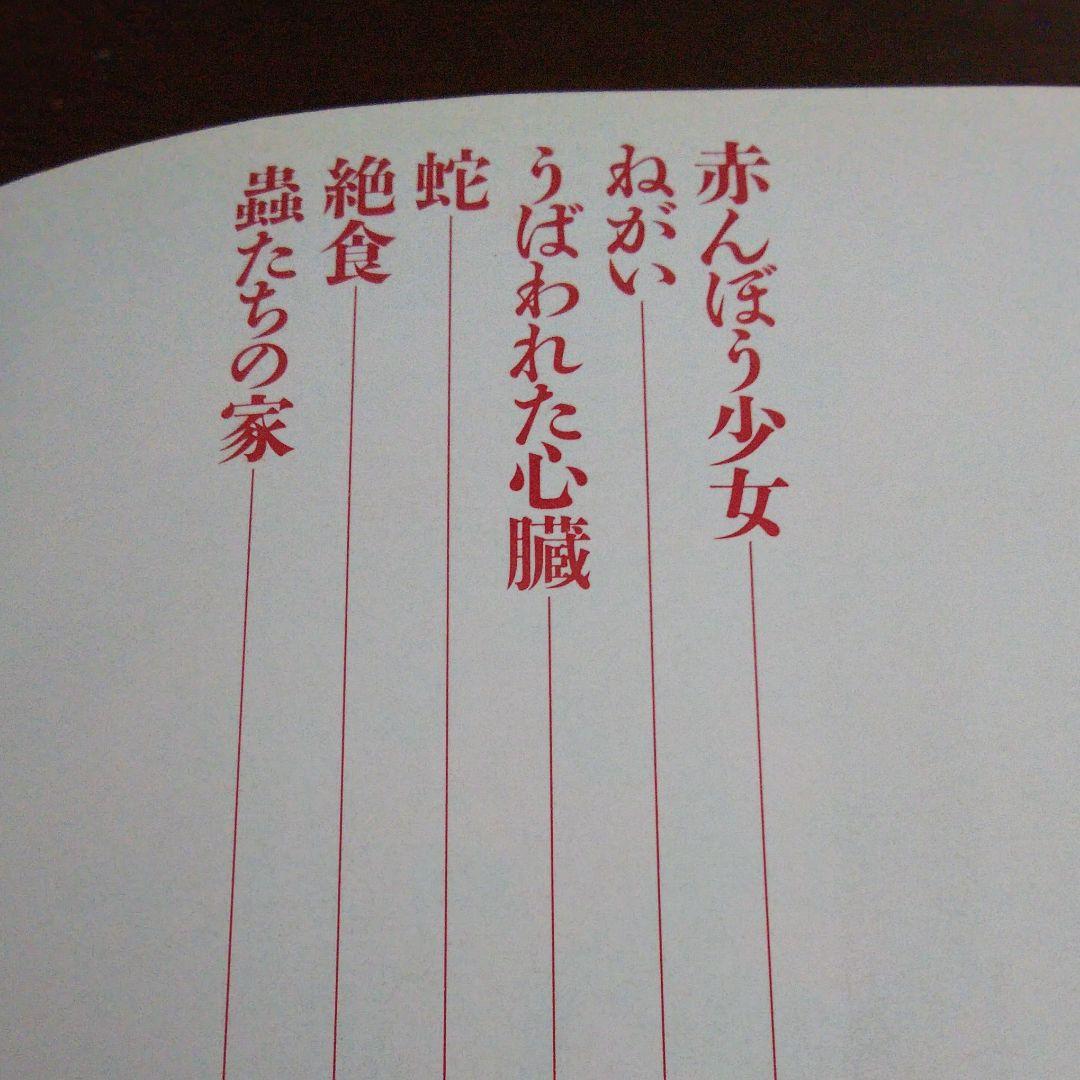 赤んぼう少女
ねがい
うばわれた心臓
蛇
絶食
蟲たちの家